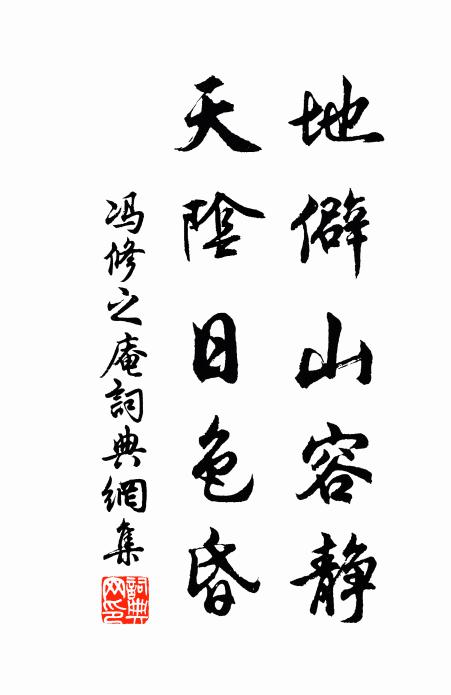 地僻山容静
天陰日色昏
冯修之庵詞典網集
詞典
网印